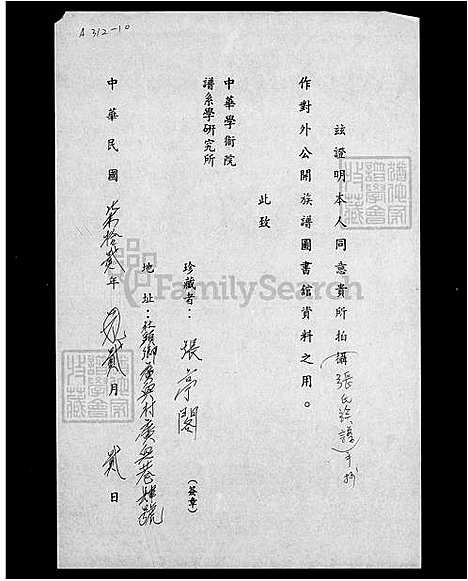 A312-10
茲證明本人同意貴所拍攝(張氏族譜)手抄
作對外公開族譜圖書館資料之用。
此致
中華學術院
譜系學研究所
珍藏者：張亭閣(簽章)
地址：社頭鄉廣興村廣興巷肆號
中華民國柒拾貳年 貳月 貳日
FamilySearch